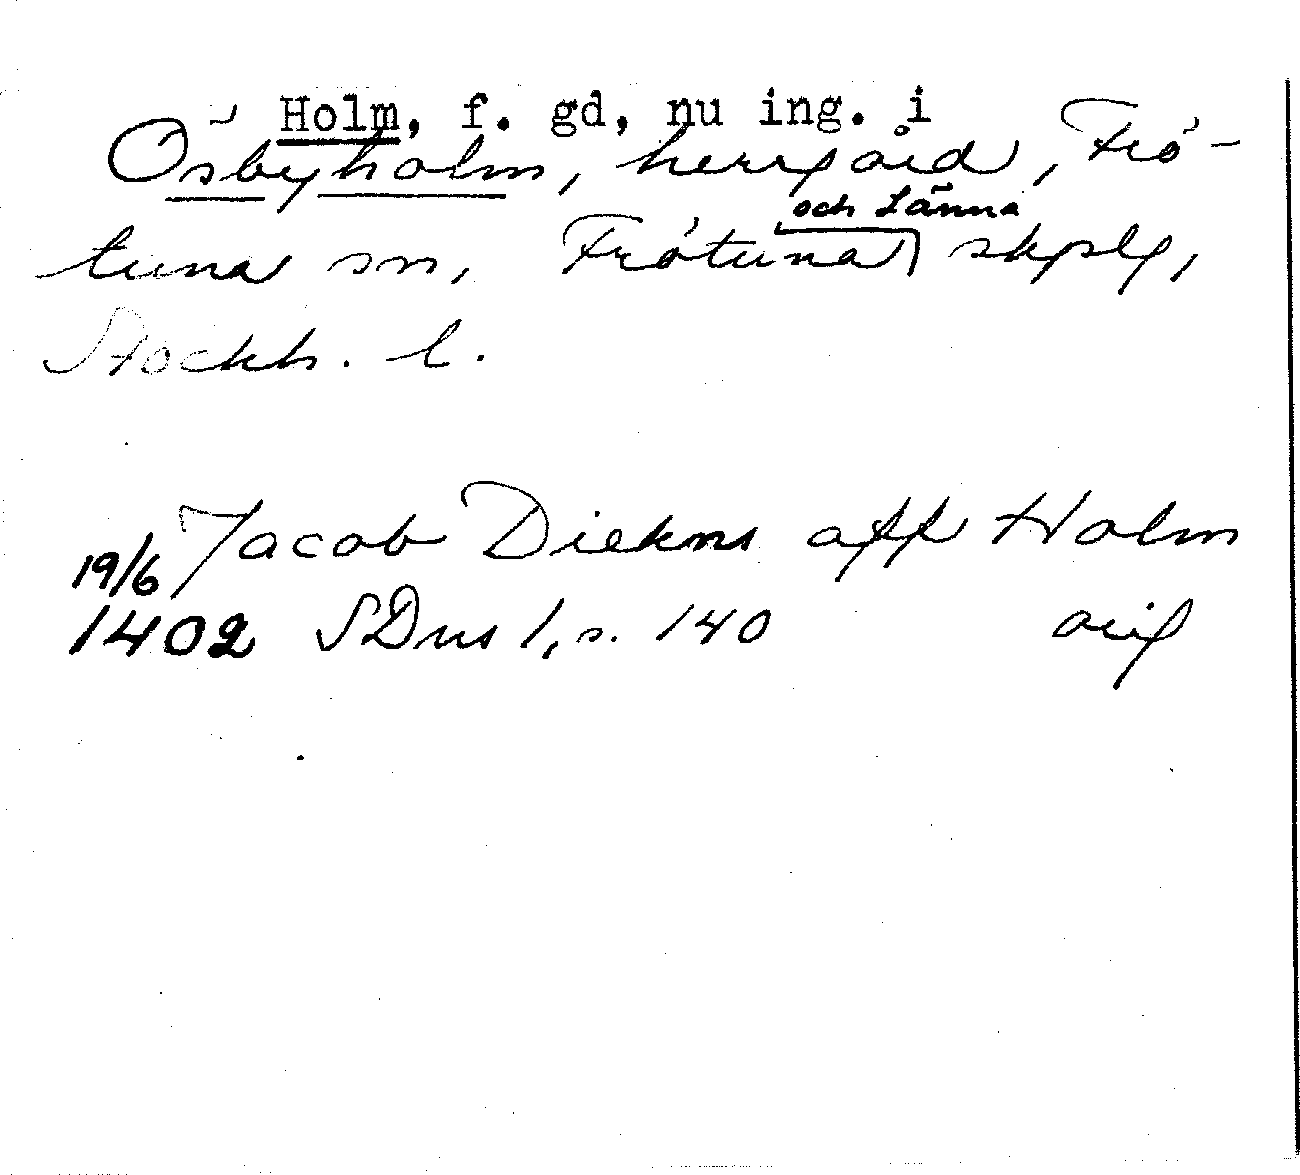 Holm, f. gd, nu ing. i
Ösbyholm, herrgård, Frö-
och Länna
tuna sn, Frötuna skplg,
Stockh. l.
19/6 Jacob Diekns aff Holm
1402 SDns 1, s. 140 orig